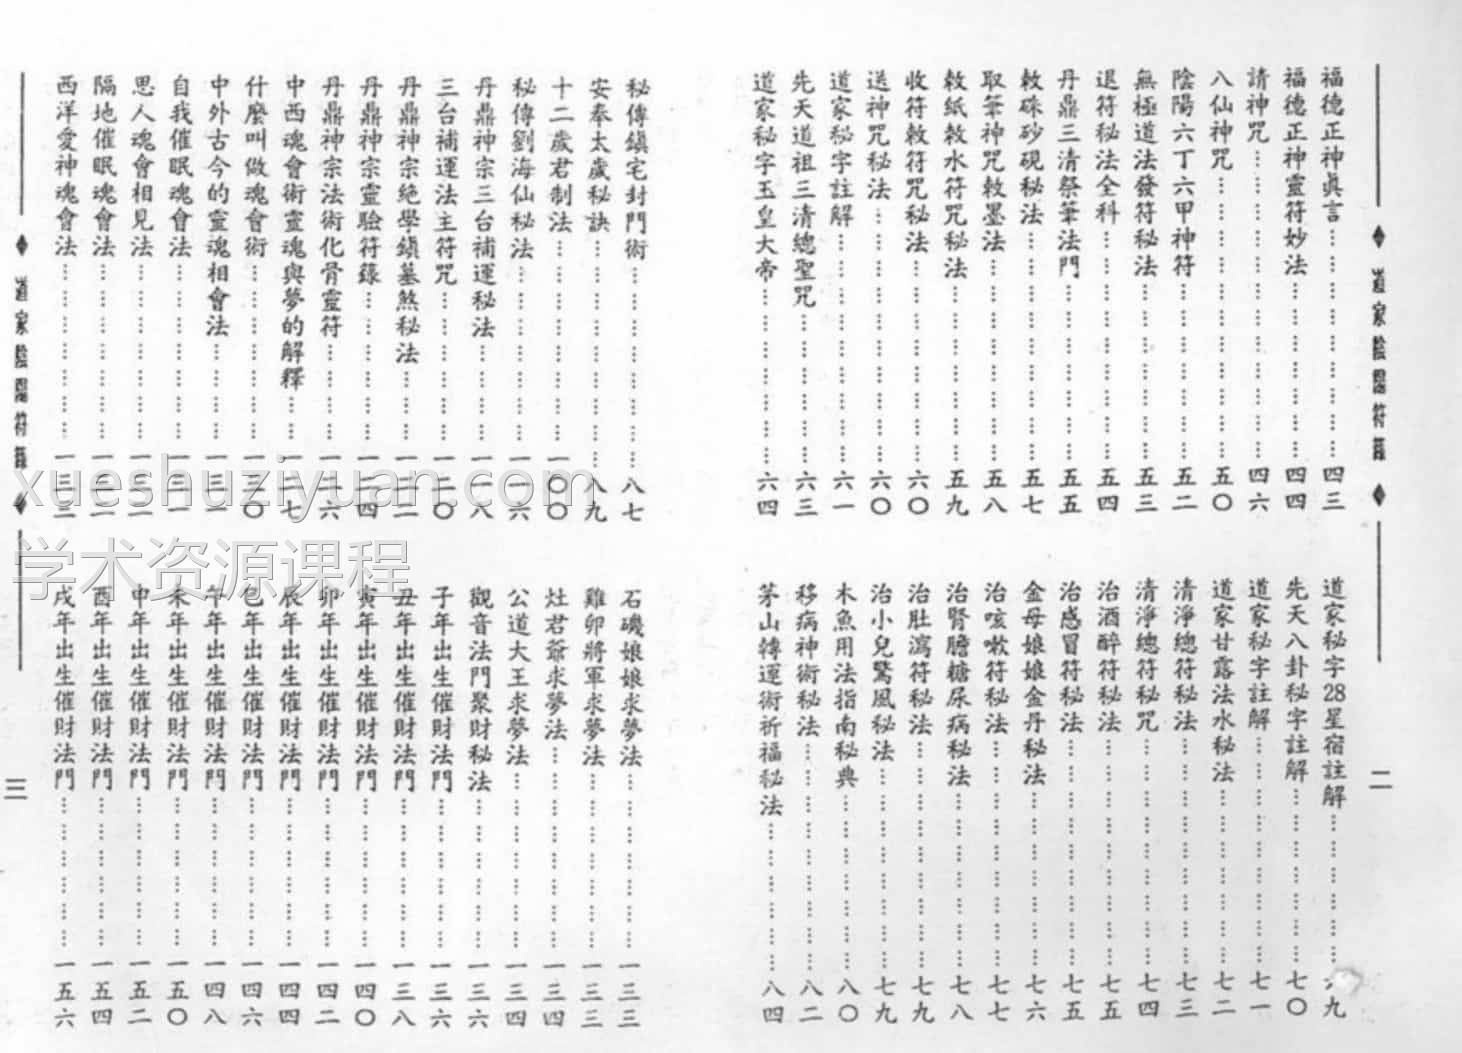 道家陰陽符籙
二
福德正神眞言…………………四三
福德正神靈符妙法…………………四四
請神咒…………………四六
八仙神咒…………………五〇
陰陽六丁六甲神符…………………五二
無極道法發符秘法…………………五三
退符秘法全科…………………五四
丹鼎三清祭筆法門…………………五五
敕硃砂硯秘法…………………五七
取筆神咒敕墨法…………………五八
敕紙敕水符咒秘法…………………五九
收符敕符咒秘法…………………六〇
送神咒秘法…………………六〇
道家秘字註解…………………六一
先天道祖三清總聖咒…………………六三
道家秘字玉皇大帝…………………六四
道家秘字28星宿註解…………………六九
先天八卦秘字註解…………………七〇
道家秘字註解…………………七一
道家甘露法水秘法…………………七二
清淨總符秘法…………………七三
清淨總符秘咒…………………七四
治酒醉符秘法…………………七五
治感冒符秘法…………………七五
金母娘娘金丹秘法…………………七六
治咳嗽符秘法…………………七七
治腎膽糖尿病秘法…………………七八
治肚瀉符秘法…………………七九
治小兒驚風秘法…………………七九
木魚用法指南秘典…………………八〇
移病神術秘法…………………八二
茅山轉運術祈福秘法…………………八四
秘傳鎭宅封門術…………………八七
安奉太歲秘訣…………………八九
十二歲君制法…………………一〇〇
秘傳劉海仙秘法…………………一一六
丹鼎神宗三台補運秘法…………………一一八
三台補運法主符咒…………………一二〇
丹鼎神宗絕學鎭墓煞秘法…………………一二二
丹鼎神宗靈驗符籙…………………一二四
丹鼎神宗法術化骨靈符…………………一二六
中西魂會術靈魂與夢的解釋…………………一二七
什麼叫做魂會術…………………一三〇
中外古今的靈魂相會法…………………一三一
自我催眠魂會法…………………一三一
思人魂會相見法…………………一三二
隔地催眠魂會法…………………一三二
西洋愛神魂會法…………………一三三
石磯娘娘求夢法…………………一三三
雞卵將軍求夢法…………………一三三
灶君爺求夢法…………………一三四
公道大王求夢法…………………一三四
觀音法門聚財秘法…………………一三六
子年出生催財法門…………………一三六
丑年出生催財法門…………………一三八
寅年出生催財法門…………………一四〇
卯年出生催財法門…………………一四二
辰年出生催財法門…………………一四四
巳年出生催財法門…………………一四六
午年出生催財法門…………………一四八
未年出生催財法門…………………一五〇
申年出生催財法門…………………一五二
酉年出生催財法門…………………一五四
戌年出生催財法門…………………一五六
道家陰陽符籙
三
xueshuziyuan.com
学术资源课程